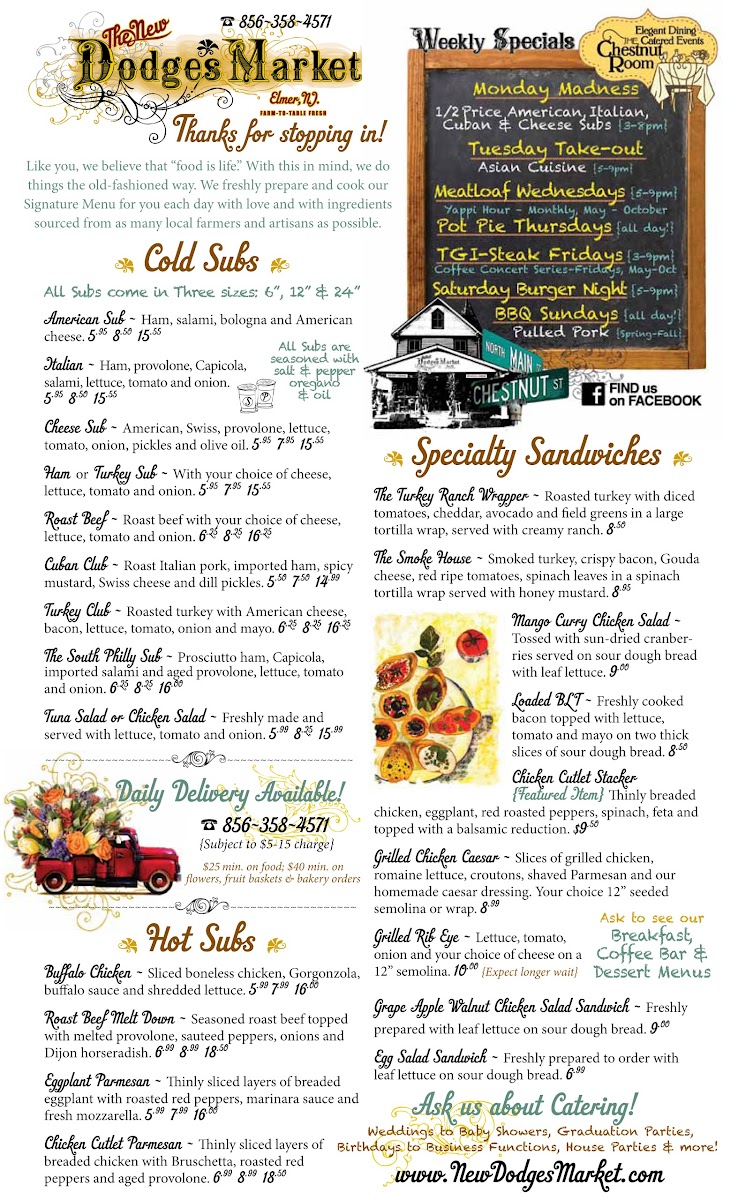 ☎ 856-358-4571
The New
Dodges Market
Elmer, NJ.
FARM-TO-TABLE FRESH
Thanks for stopping in!
Like you, we believe that “food is life.” With this in mind, we do
things the old-fashioned way. We freshly prepare and cook our
Signature Menu for you each day with love and with ingredients
sourced from as many local farmers and artisans as possible.
Cold Subs
All Subs come in Three sizes: 6”, 12” & 24”
American Sub ~ Ham, salami, bologna and American
cheese. 5.95 8.50 15.55
Italian ~ Ham, provolone, Capicola,
salami, lettuce, tomato and onion.
5.95 8.50 15.55
All Subs are
seasoned with
salt & pepper
oregano
& oil
S P
Cheese Sub ~ American, Swiss, provolone, lettuce,
tomato, onion, pickles and olive oil. 5.95 7.95 15.55
Ham or Turkey Sub ~ With your choice of cheese,
lettuce, tomato and onion. 5.95 7.95 15.55
Roast Beef ~ Roast beef with your choice of cheese,
lettuce, tomato and onion. 6.25 8.25 16.25
Cuban Club ~ Roast Italian pork, imported ham, spicy
mustard, Swiss cheese and dill pickles. 5.50 7.50 14.99
Turkey Club ~ Roasted turkey with American cheese,
bacon, lettuce, tomato, onion and mayo. 6.25 8.25 16.25
The South Philly Sub ~ Prosciutto ham, Capicola,
imported salami and aged provolone, lettuce, tomato
and onion. 6.25 8.25 16.00
Tuna Salad or Chicken Salad ~ Freshly made and
served with lettuce, tomato and onion. 5.99 8.25 15.99
Daily Delivery Available!
☎ 856-358-4571
{Subject to $5-15 charge}
$25 min. on food; $40 min. on
flowers, fruit baskets & bakery orders
Hot Subs
Buffalo Chicken ~ Sliced boneless chicken, Gorgonzola,
buffalo sauce and shredded lettuce. 5.99 7.99 16.00
Roast Beef Melt Down ~ Seasoned roast beef topped
with melted provolone, sauteed peppers, onions and
Dijon horseradish. 6.99 8.99 18.50
Eggplant Parmesan ~ Thinly sliced layers of breaded
eggplant with roasted red peppers, marinara sauce and
fresh mozzarella. 5.99 7.99 16.00
Chicken Cutlet Parmesan ~ Thinly sliced layers of
breaded chicken with Bruschetta, roasted red
peppers and aged provolone. 6.99 8.99 18.50
Weekly Specials
Elegant Dining
THE Catered Events
Chestnut
Room
Monday Madness
1/2 Price American, Italian,
Cuban & Cheese Subs {3-8pm}
Tuesday Take-out
Asian Cuisine {5-9pm}
Meatloaf Wednesdays {5-9pm}
Yappi Hour - Monthly, May - October
Pot Pie Thursdays {all day!}
TGI-Steak Fridays {3-9pm}
Coffee Concert Series-Fridays, May-Oct
Saturday Burger Night {5-9pm}
BBQ Sundays {all day!}
Pulled Pork {Spring-Fall}
Dodges Market
NORTH MAIN ST
CHESTNUT ST
f FIND us
on FACEBOOK
Specialty Sandwiches
The Turkey Ranch Wrapper ~ Roasted turkey with diced
tomatoes, cheddar, avocado and field greens in a large
tortilla wrap, served with creamy ranch. 8.50
The Smoke House ~ Smoked turkey, crispy bacon, Gouda
cheese, red ripe tomatoes, spinach leaves in a spinach
tortilla wrap served with honey mustard. 8.95
Mango Curry Chicken Salad ~
Tossed with sun-dried cranber-
ries served on sour dough bread
with leaf lettuce. 9.00
Loaded BLT ~ Freshly cooked
bacon topped with lettuce,
tomato and mayo on two thick
slices of sour dough bread. 8.50
Chicken Cutlet Stacker
{Featured Item} Thinly breaded
chicken, eggplant, red roasted peppers, spinach, feta and
topped with a balsamic reduction. $9.50
Grilled Chicken Caesar ~ Slices of grilled chicken,
romaine lettuce, croutons, shaved Parmesan and our
homemade caesar dressing. Your choice 12” seeded
semolina or wrap. 8.99
Grilled Rib Eye ~ Lettuce, tomato,
onion and your choice of cheese on a
12” semolina. 10.00 {Expect longer wait}
Ask to see our
Breakfast,
Coffee Bar &
Dessert Menus
Grape Apple Walnut Chicken Salad Sandwich ~ Freshly
prepared with leaf lettuce on sour dough bread. 9.00
Egg Salad Sandwich ~ Freshly prepared to order with
leaf lettuce on sour dough bread. 6.99
Ask us about Catering!
Weddings to Baby Showers, Graduation Parties,
Birthdays to Business Functions, House Parties & more!
www.NewDodgesMarket.com